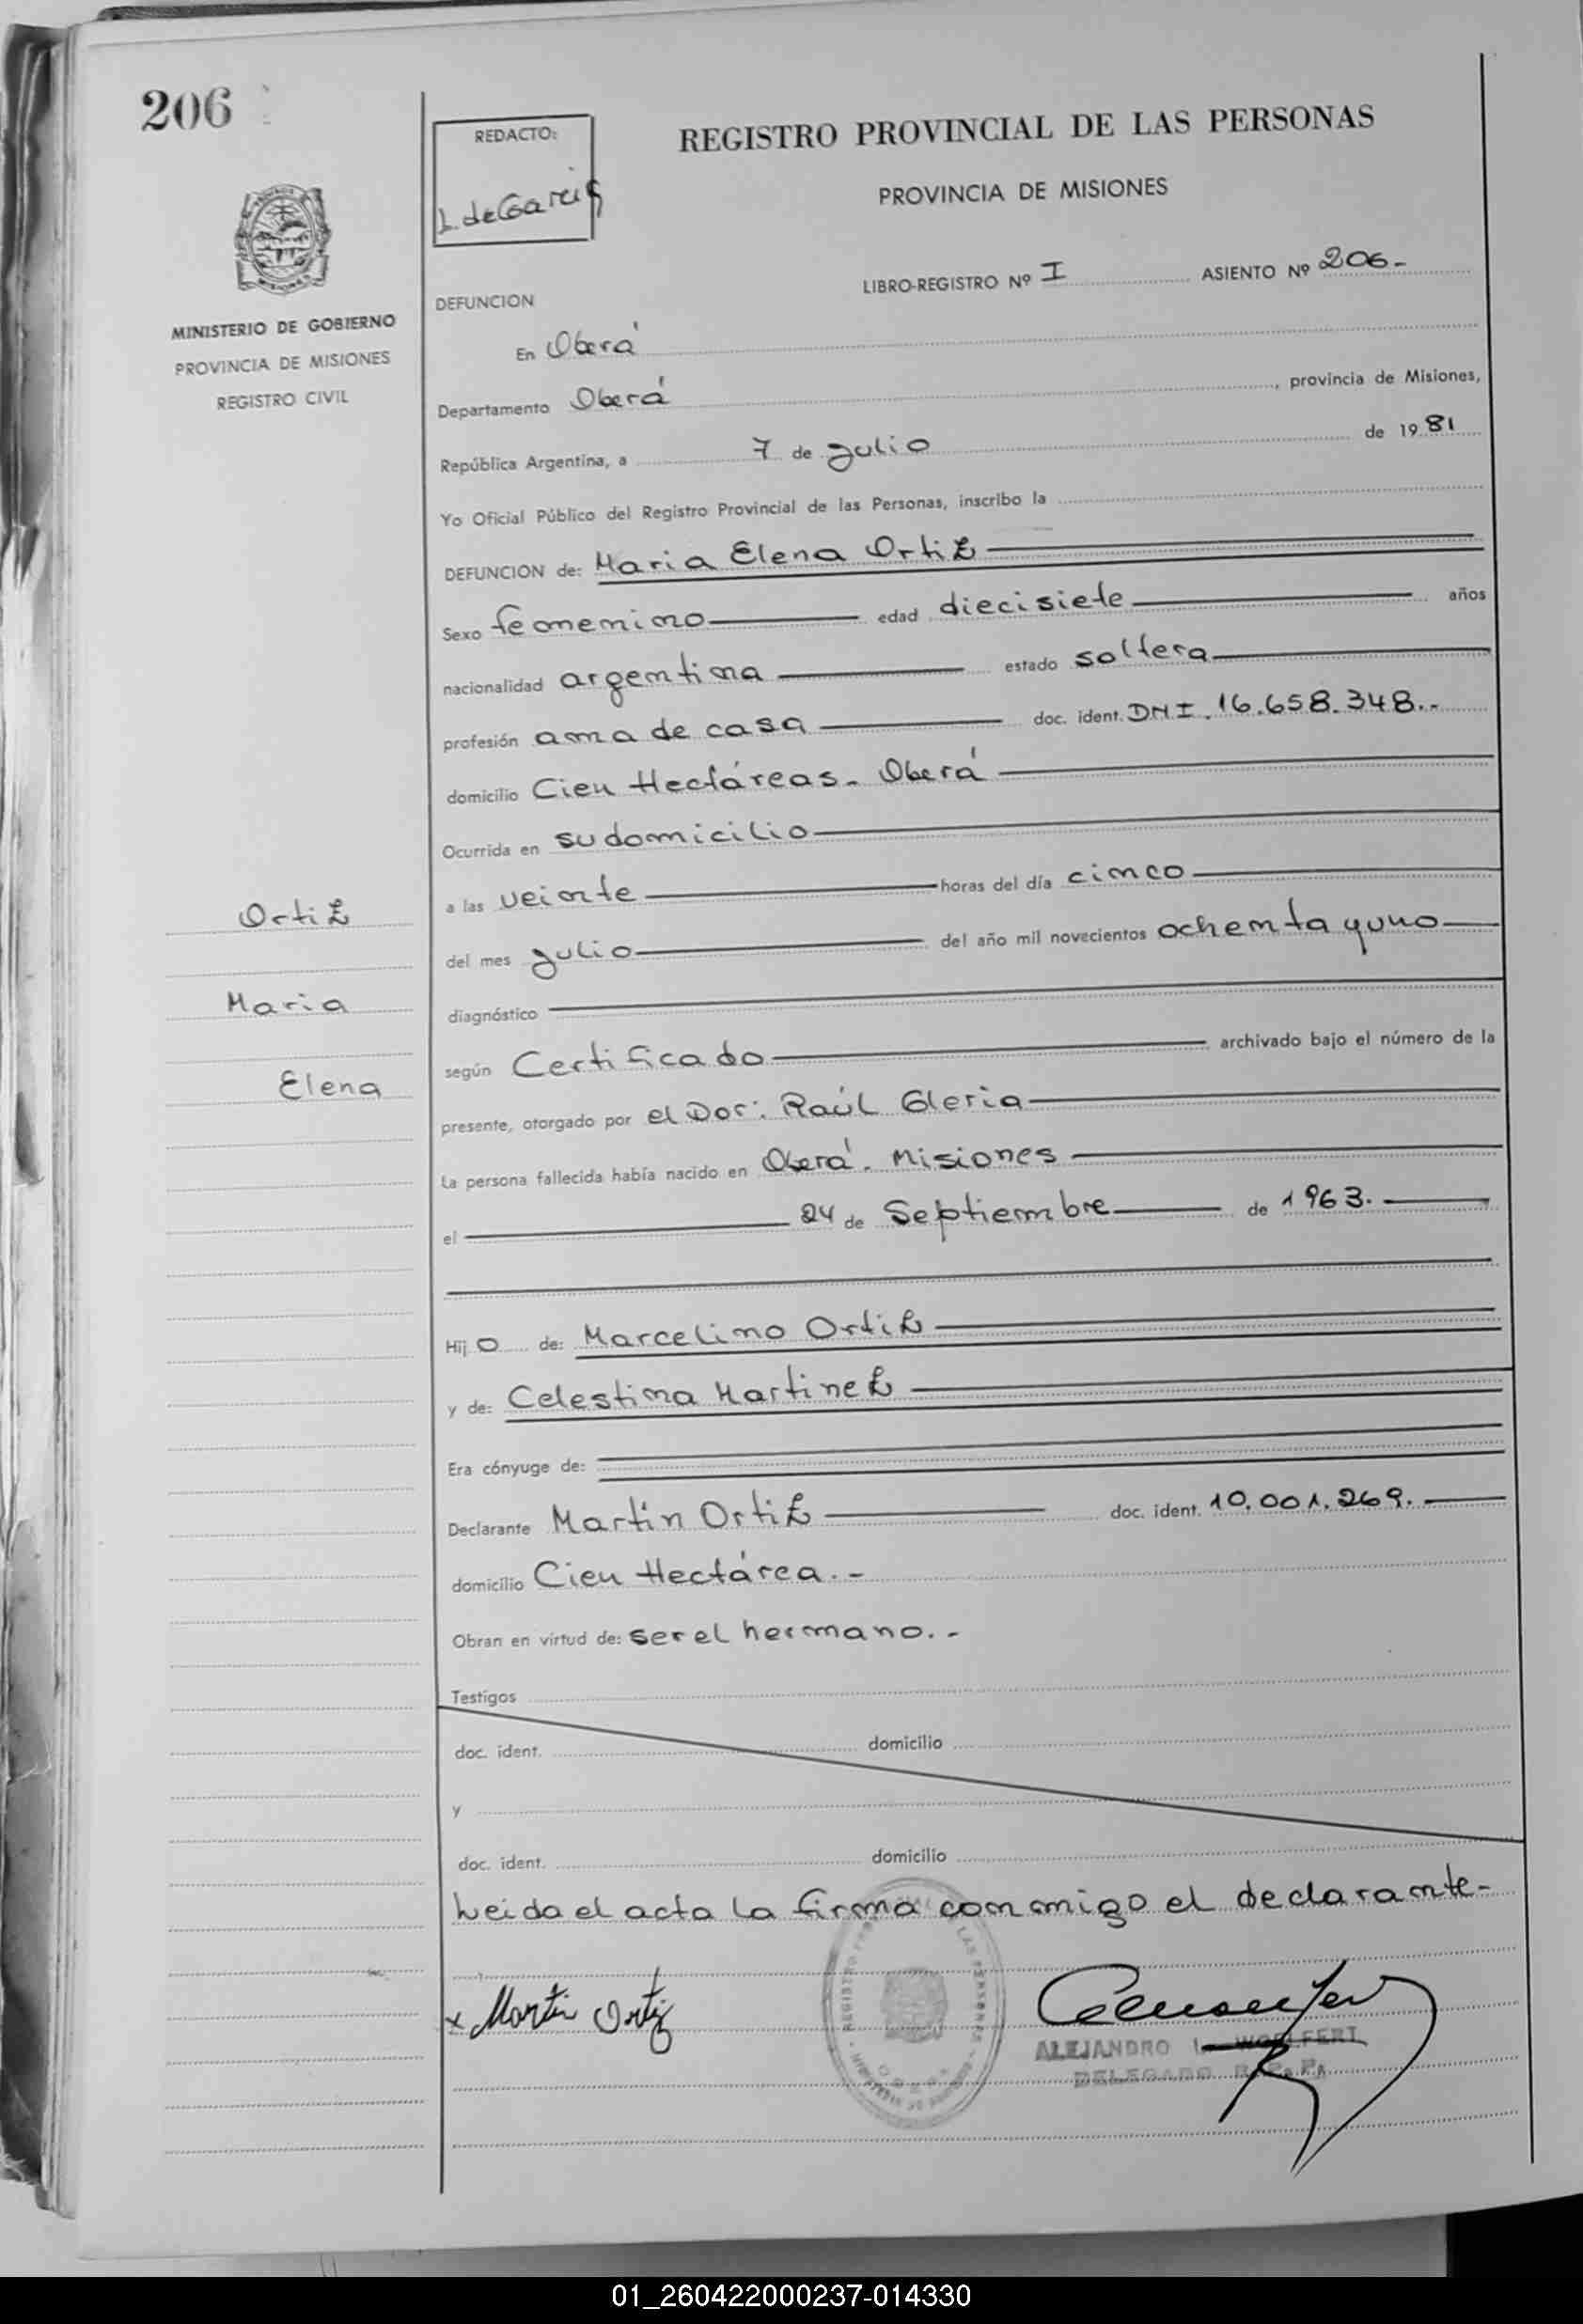 206
REDACTO:
L. de Garcia
REGISTRO PROVINCIAL DE LAS PERSONAS
PROVINCIA DE MISIONES
MINISTERIO DE GOBIERNO
PROVINCIA DE MISIONES
REGISTRO CIVIL
LIBRO-REGISTRO Nº I ASIENTO Nº 206-
DEFUNCION
En Oberá
Departamento Oberá, provincia de Misiones,
República Argentina, a 7 de julio de 1981
Yo Oficial Público del Registro Provincial de las Personas, inscribo la
DEFUNCION de: Maria Elena Ortiz
Sexo femenino edad diecisiete años
nacionalidad argentina estado soltera
profesión ama de casa doc. ident. DNI. 16.658.348.-
domicilio Cien Hectáreas - Oberá
Ocurrida en su domicilio
a las veinte horas del día cinco
del mes julio del año mil novecientos ochenta y uno
diagnóstico
según Certificado archivado bajo el número de la
presente, otorgado por el Doc: Raúl Gleria
La persona fallecida había nacido en Oberá. Misiones
el 24 de Septiembre de 1963.
Hijo de: Marcelino Ortiz
y de: Celestina Martinez
Era cónyuge de:
Declarante Martín Ortiz doc. ident. 10.001.269.
domicilio Cien Hectárea.-
Obran en virtud de: ser el hermano.-
Testigos
doc. ident. domicilio
y
doc. ident. domicilio
Leida el acta la firma conmigo el declarante-
x Martin Ortiz
ALEJANDRO WOLFERT
DELEGADO R. P. P.
Ortiz
Maria
Elena
01_260422000237-014330